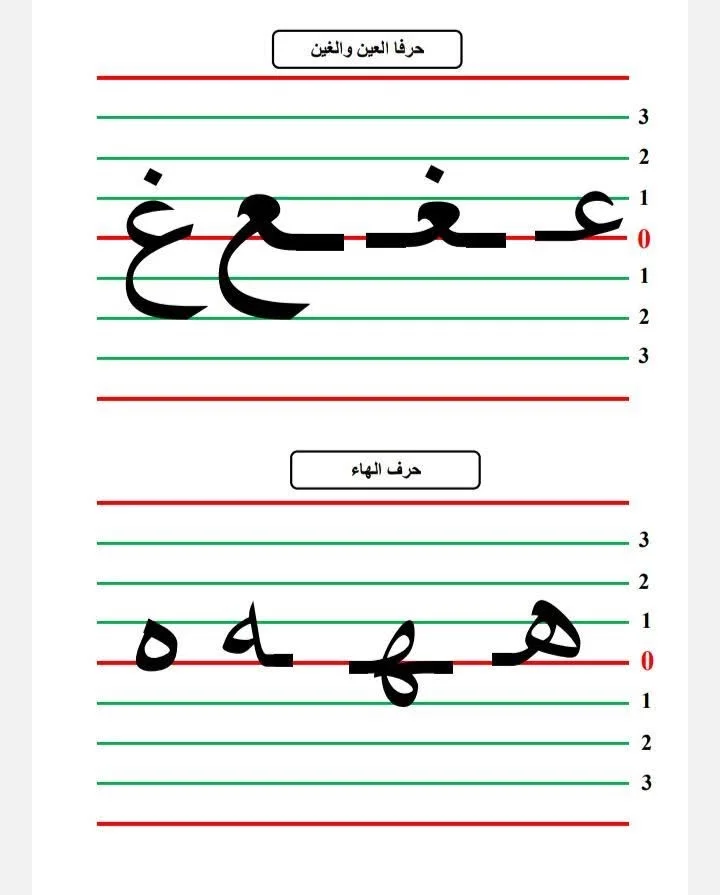 حرفا العين والغين
3
2
عـ ـغـ ـع غ 1
0
1
2
3
حرف الهاء
3
2
1
هـ ـهـ ـه ه 0
1
2
3